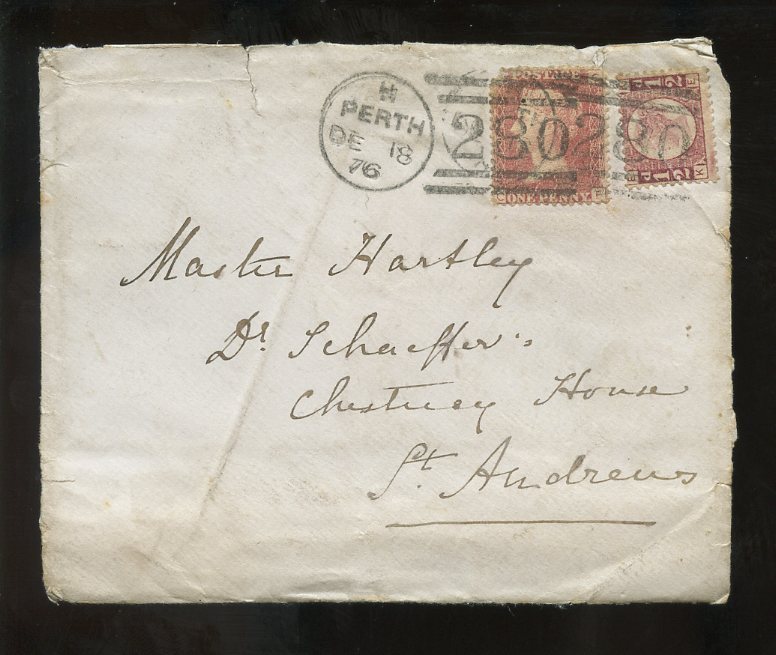 H
PERTH
DE 18
76
280 280
ONE PENNY
Master Hartley
Dr Schaeffer's
House
St. Andrews